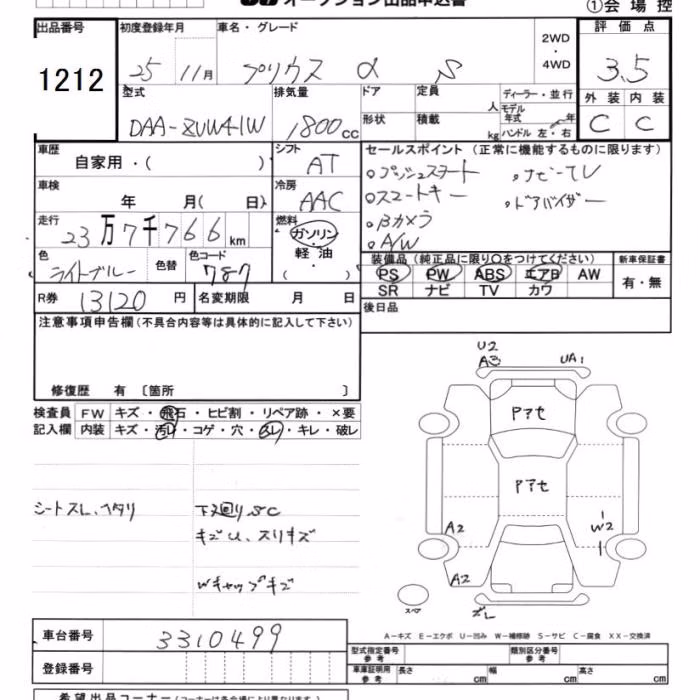 オークション出品申込書
①会場控
出品番号 初度登録年月 車名・グレード 2WD・4WD 評価点
1212 25 11月 プリウス α S 3.5
型式 排気量 ドア 定員 人 ディーラー・並行
モデル年式 年
外装 内装
DAA-ZVW41W 1800cc 形状 積載 kg ハンドル 左・右 C C
車歴 自家用・( ) シフト AT セールスポイント (正常に機能するものに限ります)
車検 年 月( 日) 冷房 AAC
。プッシュスタート 。ナビーTV
。スマートキー 。ドアバイザー
。Bカメラ
。A/W
走行 23万7千766km 燃料 ガソリン・軽油
( ・ )
色 ライトブルー 色替 色コード 787
装備品 (純正品に限り〇をつけてください) 新車保証書
PS PW ABS エアB AW 有・無
SR ナビ TV カワ
R券 13120円 名変期限 月 日 後日品
注意事項申告欄 (不具合内容等は具体的に記入して下さい)
修復歴 有 〔箇所 〕
検査員 FW キズ・飛石・ヒビ割・リペア跡・×要
記入欄 内装 キズ・汚レ・コゲ・穴・スレ・キレ・破レ
シートスレ、ヘタリ
下廻りSC
キズU、スリキズ
Wキャップキズ
U2
A3 UA1
Pアセ
Pアセ
A2 W2
A2
スペア ズレ
A-キズ E-エクボ U-凹み W-補修跡 S-サビ C-腐食 XX-交換済
車台番号 3310499
型式指定番号 参考 類別区分番号 参考
登録番号
車庫証明用 参考 長さ cm 幅 cm 高さ cm
希望出品コーナー (コーナーは各会場により異なります)